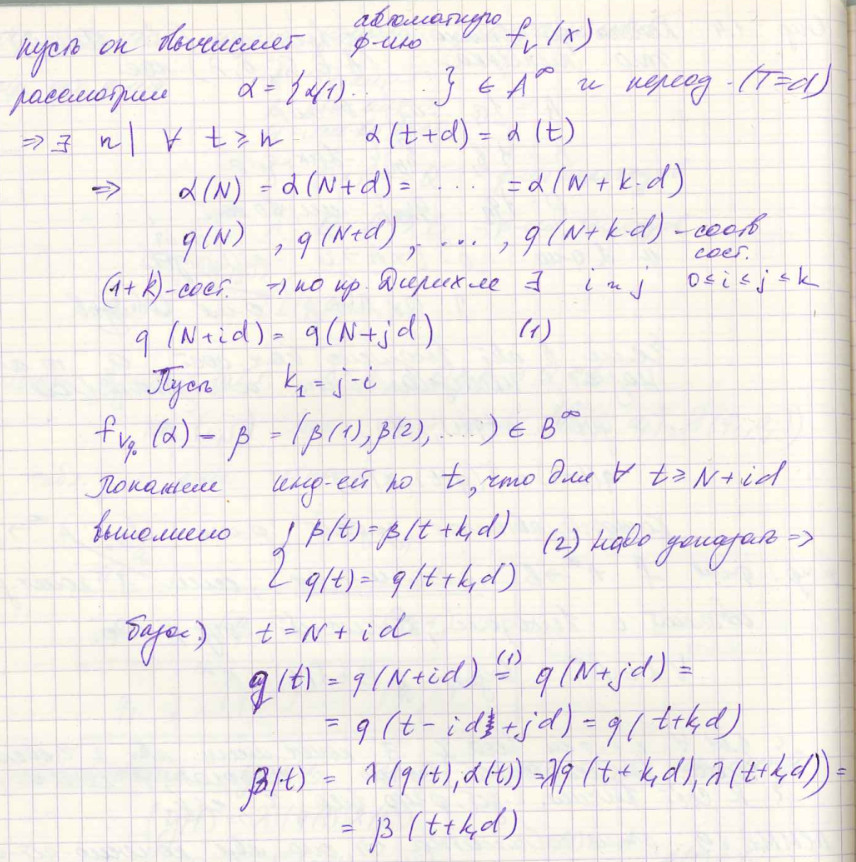 пусть он вычисляет автоматную ф-ию f_v(x)
рассмотрим α = {α(1) . . . . } ∈ A^∞ и период. (T=d)
⇒ ∃ n | ∀ t ≥ n α(t+d) = α(t)
⇒ α(N) = α(N+d) = . . . . = α(N+k·d)
q(N), q(N+d), . . . ., q(N+k·d) - соотв сост.
(1+k)-сост. → по пр. Дирихле ∃ i и j 0≤i≤j≤k
q(N+id) = q(N+jd) (1)
Пусть k₁ = j-i
f_{Vq₀}(α) = β = (β(1), β(2), .....) ∈ B^∞
Покажем инд-ей по t, что для ∀ t ≥ N+id
выполнено { β(t) = β(t+k₁d) (2) надо доказать ⇒
q(t) = q(t+k₁d)
базис) t = N + id
q(t) = q(N+id) =^{(1)} q(N+jd) =
= q(t-id+jd) = q(t+k₁d)
β(t) = λ(q(t), α(t)) = λ(q(t+k₁d), λ(t+k₁d)) =
= β(t+k₁d)